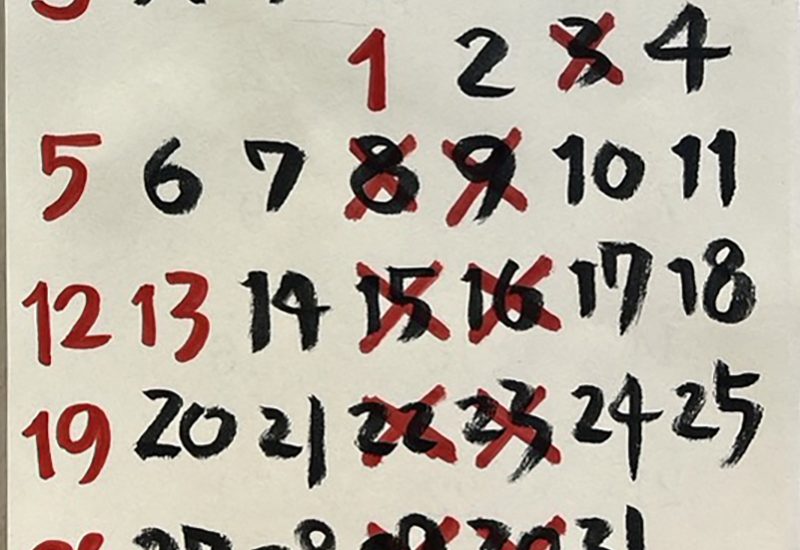 1 2 3 4
5 6 7 8 9 10 11
12 13 14 15 16 17 18
19 20 21 22 23 24 25
31